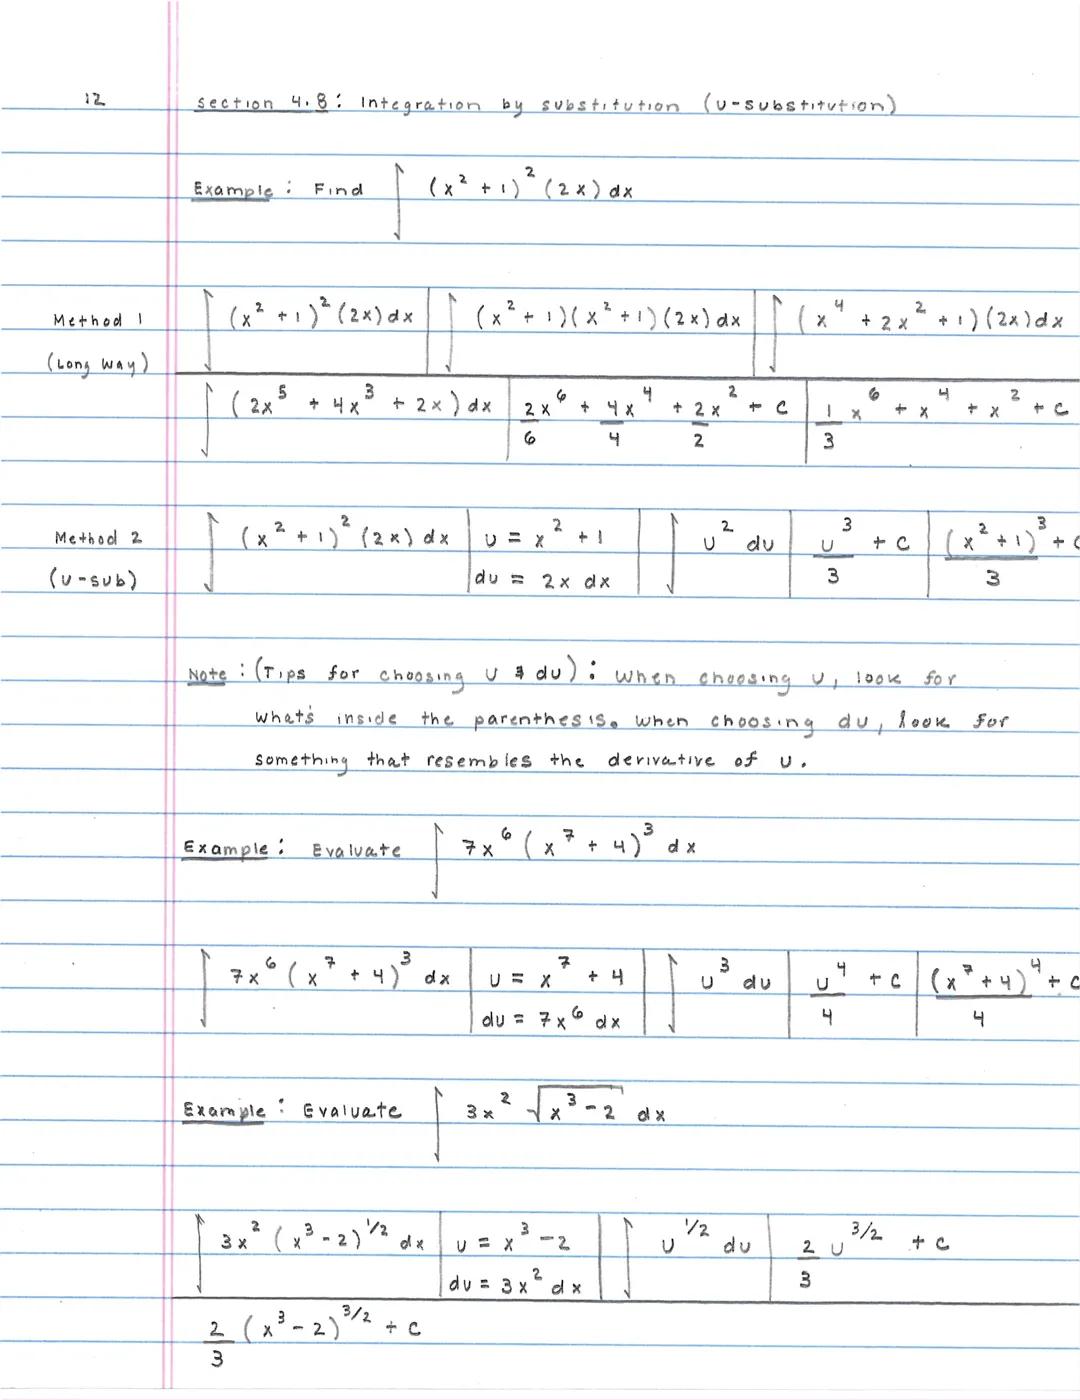 12 section 4.8: Integration by substitution (u-substitution)
Example: Find ∫ (x² + 1)² (2x) dx
Method 1 (Long way)
∫ (x² + 1)² (2x) dx | ∫ (x² + 1)(x² + 1)(2x) dx | ∫ (x⁴ + 2x² + 1)(2x) dx
∫ (2x⁵ + 4x³ + 2x) dx | 2x⁶/6 + 4x⁴/4 + 2x²/2 + C | 1/3 x⁶ + x⁴ + x² + C
Method 2 (u-sub)
∫ (x² + 1)² (2x) dx | u = x² + 1 | ∫ u² du | u³/3 + C | (x² + 1)³/3 + C
du = 2x dx
Note: (Tips for choosing u & du): when choosing u, look for
what's inside the parenthesis. when choosing du, look for
something that resembles the derivative of u.
Example: Evaluate ∫ 7x⁶ (x⁷ + 4)³ dx
∫ 7x⁶ (x⁷ + 4)³ dx | u = x⁷ + 4 | ∫ u³ du | u⁴/4 + C | (x⁷ + 4)⁴/4 + C
du = 7x⁶ dx
Example: Evaluate ∫ 3x² √(x³ - 2) dx
∫ 3x² (x³ - 2)^1/2 dx | u = x³ - 2 | ∫ u^1/2 du | 2/3 u^3/2 + C
du = 3x² dx
2/3 (x³ - 2)^3/2 + C